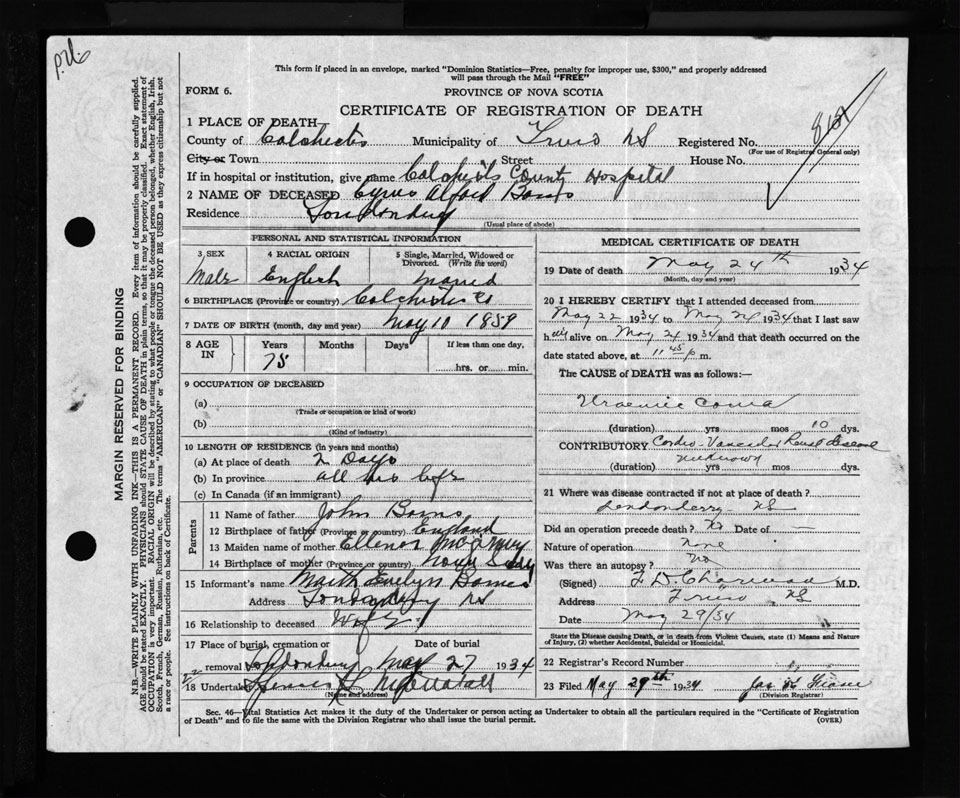 This form if placed in an envelope, marked "Dominion Statistics—Free, penalty for improper use, $300," and properly addressed
will pass through the Mail "FREE"
FORM 6.
PROVINCE OF NOVA SCOTIA
CERTIFICATE OF REGISTRATION OF DEATH
1 PLACE OF DEATH
County of Colchester Municipality of Truro NS Registered No.
(For use of Registrar General only)
City or Town Street House No.
If in hospital or institution, give name Colchester County Hospital
2 NAME OF DECEASED Cyrus Alfred
Residence Londonderry
(Usual place of abode)
PERSONAL AND STATISTICAL INFORMATION
3 SEX 4 RACIAL ORIGIN 5 Single, Married, Widowed or Divorced. (Write the word)
Male English Married
6 BIRTHPLACE (Province or country) Colchester Co
7 DATE OF BIRTH (month, day and year) May 10 1859
8 AGE IN Years Months Days If less than one day,
75 hrs. or min.
9 OCCUPATION OF DECEASED
(a)
(Trade or occupation or kind of work)
(b)
(Kind of industry)
10 LENGTH OF RESIDENCE (in years and months)
(a) At place of death 2 Days
(b) In province all his life
(c) In Canada (if an immigrant)
Parents
11 Name of father John
12 Birthplace of father (Province or country) England
13 Maiden name of mother Ellenor
14 Birthplace of mother (Province or country) Nova Scotia
15 Informant's name Evelyn
Address Londonderry NS
16 Relationship to deceased Wife
17 Place of burial, cremation or Date of burial
removal Londonderry May 27 1934
18 Undertaker
(Name and address)
MEDICAL CERTIFICATE OF DEATH
19 Date of death May 24th 1934
(Month, day and year)
20 I HEREBY CERTIFY that I attended deceased from
May 22 1934 to May 24 1934 that I last saw
him alive on May 24 1934 and that death occurred on the
date stated above, at 11 45 p m.
The CAUSE of DEATH was as follows:—
Uraemic coma
(duration) yrs mos 10 dys.
CONTRIBUTORY Cardio-Vascular Renal disease
(duration) unknown yrs mos dys.
21 Where was disease contracted if not at place of death?
Londonderry NS
Did an operation precede death? No Date of —
Nature of operation None
Was there an autopsy? No
(Signed) F D M.D.
Address Truro NS
Date May 29/34
State the Disease causing Death, or in death from Violent Causes, state (1) Means and Nature
of Injury, (2) whether Accidental, Suicidal or Homicidal.
22 Registrar's Record Number
23 Filed May 29th 1934
(Division Registrar)
Sec. 46—Vital Statistics Act makes it the duty of the Undertaker or person acting as Undertaker to obtain all the particulars required in the "Certificate of Registration
of Death" and to file the same with the Division Registrar who shall issue the burial permit.
(OVER)
MARGIN RESERVED FOR BINDING
N.B.—WRITE PLAINLY WITH UNFADING INK—THIS IS A PERMANENT RECORD. Every item of information should be carefully supplied.
AGE should be stated EXACTLY. PHYSICIANS should state CAUSE OF DEATH in plain terms, so that it may be properly classified. Exact statement of
OCCUPATION is very important. RACIAL ORIGIN will be described by stating to what people or tongue the deceased person belonged, whether English, Irish,
Scotch, French, German, Russian, Ruthenian, etc. The terms "AMERICAN" or "CANADIAN" SHOULD NOT BE USED as they express citizenship but not
a race or people. See instructions on back of Certificate.